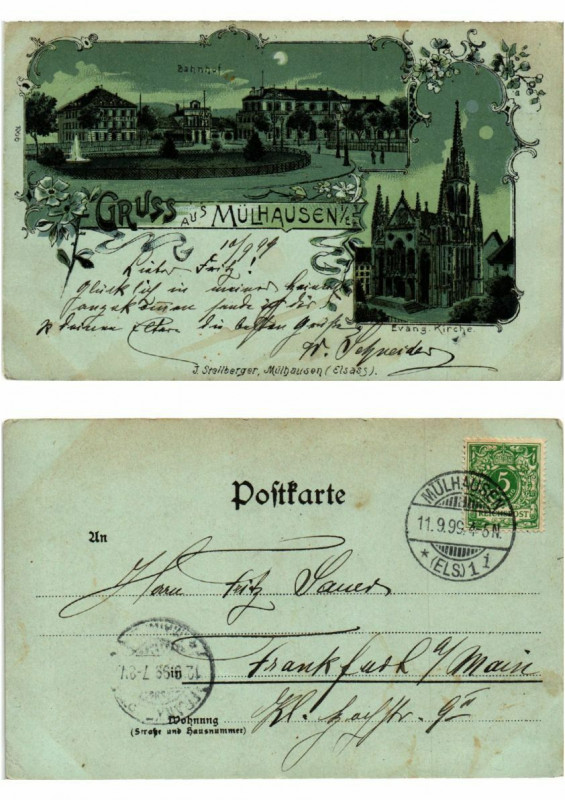 Bahnhof
9001
GRUSS AUS MÜLHAUSEN i/E.
10/9 99
Lieber Fritz!
Glücklich in meiner
die
deinen Eltern die besten Grüße
W. Schneider
Evang. Kirche.
J. Stollberger, Mülhausen (Elsass).
Postkarte
5
REICHSPOST
MÜLHAUSEN
11.9.99. 4-5 N.
* (ELS) 1 i
An
Herrn Fritz Sauer
Frankfurt a/ Main
12.9.99 7-8V.
Wohnung
(Straße und Hausnummer)
Kl. Hochstr. 9 II